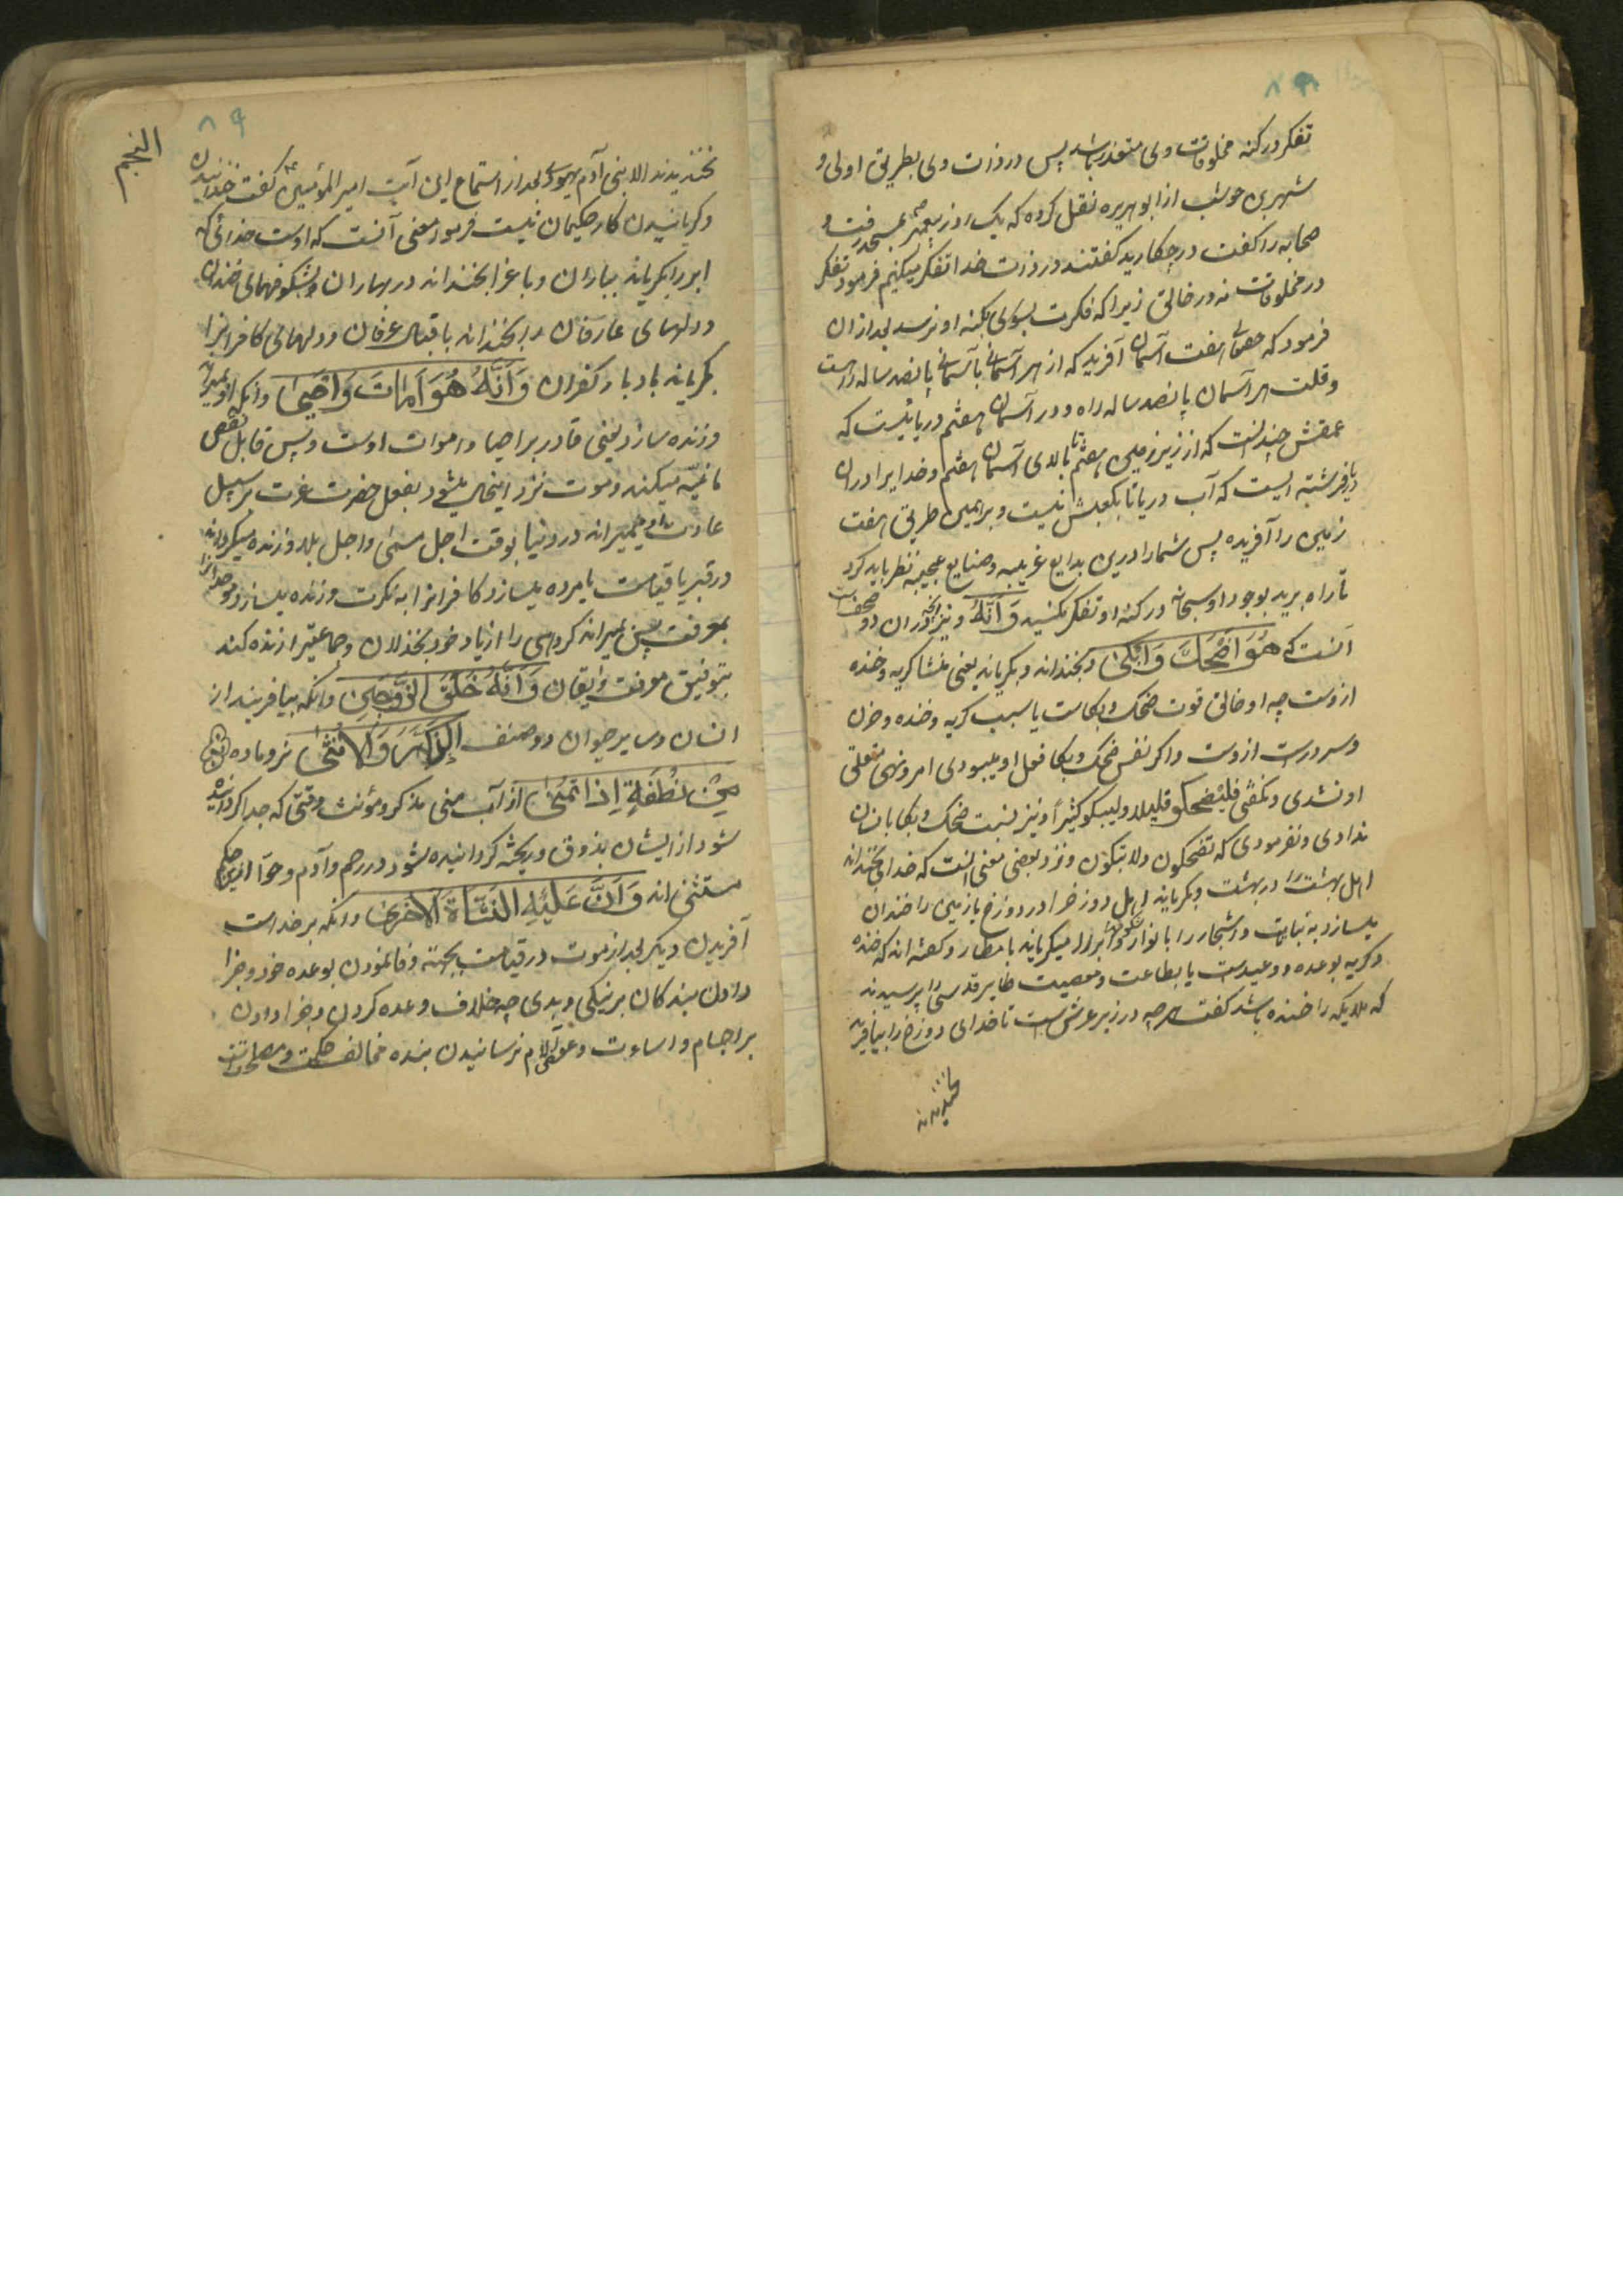 ۸۸
تفکر در کنه مخلوقات وی متعذر باشد پس در ذات وی بطریق اولی و
شهر بن حوشب از ابو هریره نقل کرده که یک روز پیغمبر بمسجد رفت و
صحابه را گفت در چکارید گفتند در ذات خدا تفکر میکنیم فرمود تفکر
در مخلوقات نه در خالق زیرا که فکرت بسوی بکنه او نرسد بعد از ان
فرمود که حقتعالی هفت آسمان آفرید که از هر آسمانی بآسمانی پانصد ساله راهست
و قلت هر آسمان پانصد ساله راه و در آسمان هفتم دریائیست که
عمقش چندانست که از زیر زمین هفتم تا بالای آسمان هفتم و خدایرا در ان
دریا فرشته ایست که آب دریا تا بکعبش نیست و بر همین طریق هفت
زمین را آفریده پس شما را درین بدایع غریبه و صنایع عجیبه نظر باید کرد
تا راه برید بوجود او سبحانه در کنه او تفکر نکنید وَاَنَّهُ و نیز انچه در ان دو صحف است
آنست که هُوَ اَضْحَكَ وَاَبْكٰى بخنداند و بگریاند یعنی منشا گریه و خنده
ازوست چه او خالق قوت ضحک و بکاست یا سبب گریه و خنده و حزن
و سرورست ازوست و اگر نفس ضحک و بکا فعل او میبودی امر و نهی متعلق
او نشدی و نگفتی فلیضحکو قلیلا ولیبکو کثیرًا و نیز نسبت ضحک و بکا بانسان
ندادی و نفرمودی که تضحکون ولا تبکون و نزد بعضی معنی انست که خدای بخنداند
اهل بهشت را در بهشت و بگریاند اهل دوزخ را در دوزخ یا زمین را خندان
میسازد به نباتات و اشجار را بانوار شکوفها و ابر را میگریاند بامطار و گفته اند که خنده
و گریه بوعده و وعیدست یا بطاعت و معصیت طایر قدسی را پرسیدند
که ملایکه را خنده باشد گفت هر چه در زیر عرش است تا خدای دوزخ را بیافرید
نخندیدند
۸۹
النجم
نخندیدند الا بنی آدم یهودی بعد از استماع این آیت امیر المؤمنین را گفت خندانیدن
و گریانیدن کار حکیمان نیست فرمود معنی آنست که اوست خدائی که
ابر را بگریاند بباران و باغ را بخنداند در بهاران بشکوفهای خندان
و دلهای عارفان را بخنداند باقبال عرفان و دلهای کافرانرا
بگریاند بادبار کفران وَاَنَّهُ هُوَ اَمَاتَ وَاَحْيٰى و انکه او بمیراند
و زنده سازد یعنی قادر بر احیا و اموات اوست و بس قابل نقض
ماغیه میکند و موت نزد اینحال میشود بفعل حضرت عزت بر سبیل
عادت و میمیراند در دنیا بوقت اجل مسمی و اجل بلا و زنده میگرداند
در قبر یا قیامت یا مرده میسازد کافرانرا به نکرت و زنده میسازد موحدانرا
بمعرفت پس بمیراند گروهی را از یاد خود بخذلان و جماعتیرا زنده کند
بتوفیق معرفت و ایقان وَاَنَّهُ خَلَقَ الزَّوْجَيْنِ و انکه بیافریند از
انسان و سایر حیوان دو صنف الذَّكَرَ وَالْاُنْثٰى نر و ماده
مِنْ نُطْفَةٍ اِذَا تُمْنٰى از آب منی مذکر و مؤنث وقتی که جدا کرده
شود از ایشان بذوق و ریخته گردانیده شود در رحم و آدم و حوا ازین حکم
مستثنی اند وَاَنَّ عَلَيْهِ النَّشْاَةَ الْاُخْرٰى و انکه بر خداست
آفریدن دیگر بعد از موت در قیامت بجهة وفا نمودن بوعده خود و جزا
دادن بندگان بر نیکی و بدی چه خلاف وعده کردن و جزا دادن
بر اجسام و اساءت و عوض آلام نرسانیدن بنده مخالف حکمت و مصلحت